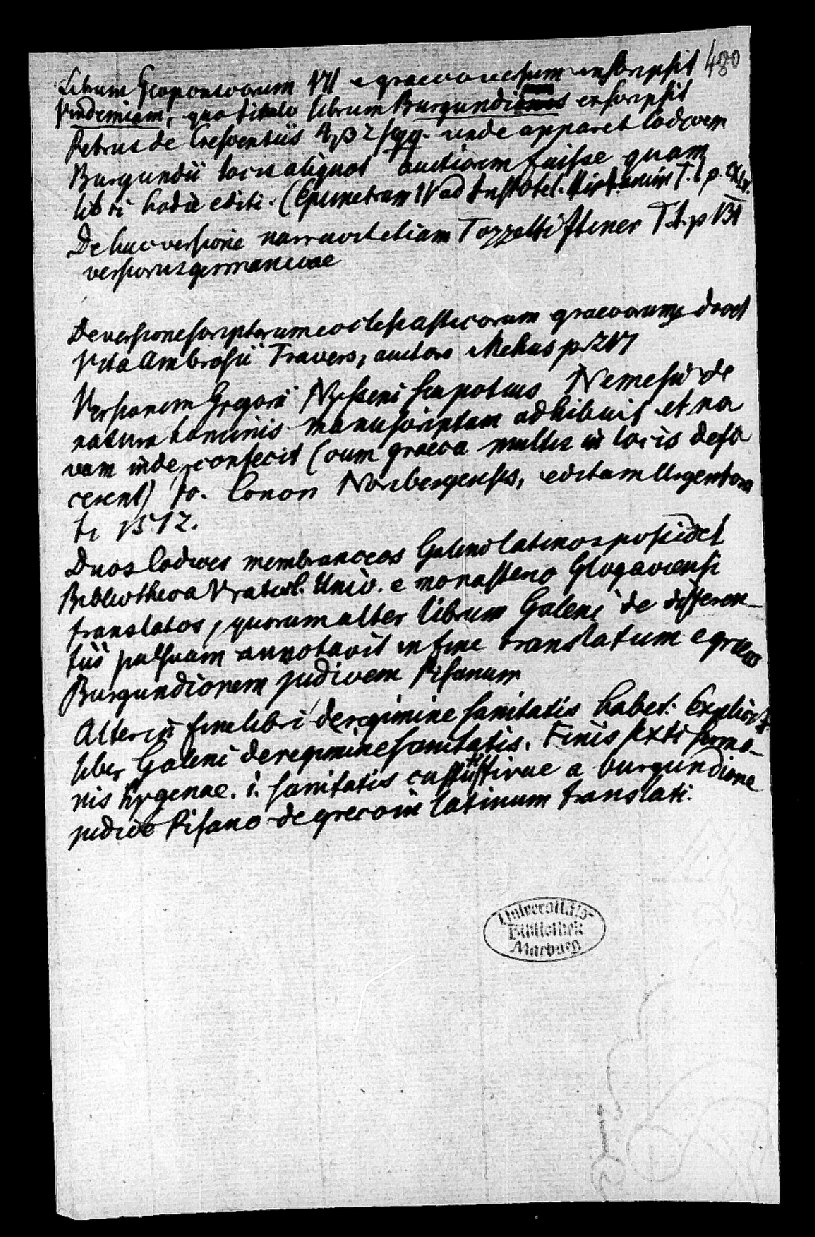 480
Librum Geoponicorum VII e graeco versum inscripsit
Vindemiam, quo titulo librum Burgundionis inscripsit
Petrus de Crescentiis 4, 32 sqq. unde apparet codicem
Burgundii locis aliquot auctiorem fuisse quam
libri hodie editi. (Epimetrum IV ad Aristotel. T. I p.
De hac versione narravit etiam Tozzetti Itiner T. I. p 131
versionis germanicae
De versione scriptorum ecclesiasticorum graecorum, docet
Vita Ambrosii Travers, auctore Mehus p. 217
Versionem Gregorii Nysseni seu potius Nemesii de
natura hominis manuscriptam adhibuit et no
vam inde confecit (cum graeca multis in locis defi
cerent) Jo. Conon Noribergensis, editam Argentora
ti 1512.
Duos Codices membranceos Galeni latinos possidet
Bibliotheca Vratisl. Univ. e monasterio Glogaviensi
translatos, quorum alter librum Galeni de differen-
tiis pulsuum annotavit in fine translatum e graeco
Burgundionem judicem Pisanum
Alter in fine libri de regimine sanitatis habet: Explicit
liber Galeni de regimine sanitatis. Finis sexti sermo-
nis hygenae. i. sanitatis a burgundione
judice Pisano de greco in latinum translati.
Universitäts-
Bibliothek
Marburg